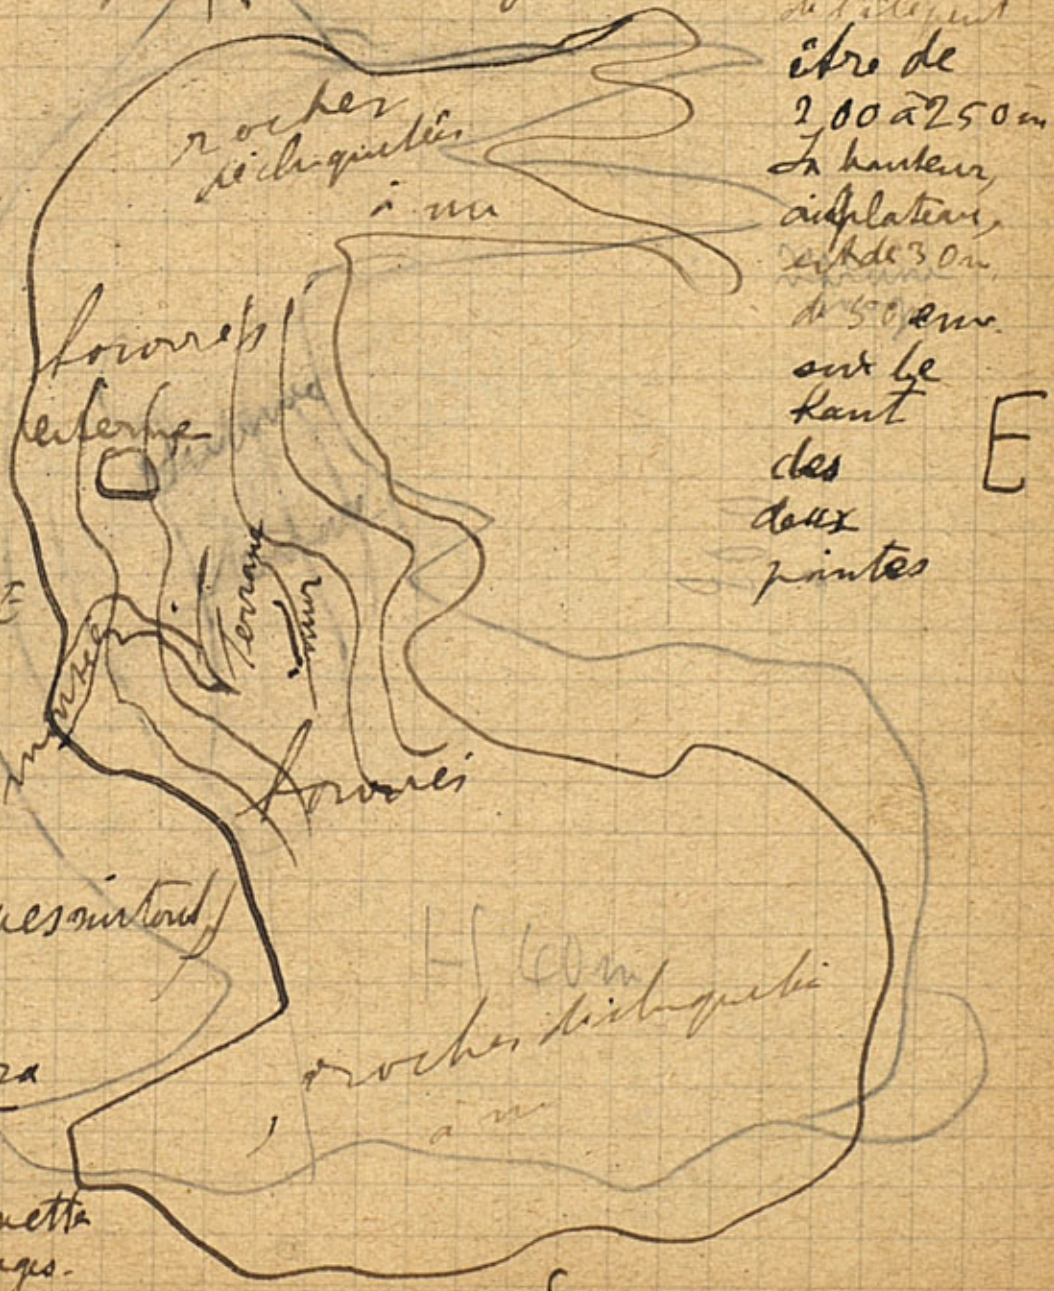 de l'ilepeut
être de
200 à 250 m
la hauteur,
au plateau,
est de 30 m
de 50 env.
sur le
haut
des
deux
pointes
E
roches
déchiquetées
à nu
fourrés
citerne
Terrasse
mur
montée
fourrés
H 60m
roches déchiquetées
à nu